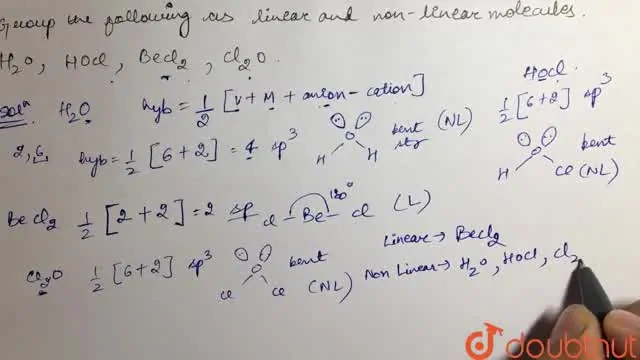 Group the following as linear and non-linear molecules.
H₂O, HOCl, BeCl₂, Cl₂O.
Solⁿ H₂O hyb = 1/2 [V + M + anion - cation]
HOCl
1/2 [6+2] sp³
2,6 hyb = 1/2 [6+2] = 4 sp³
H O H bent (NL)
H O Cl bent (NL)
BeCl₂ 1/2 [2+2] = 2 sp Cl - Be - Cl (L)
180°
Cl₂O 1/2 [6+2] sp³ O Cl Cl bent (NL)
Linear → BeCl₂
Non Linear → H₂O, HOCl, Cl₂
doubtnut